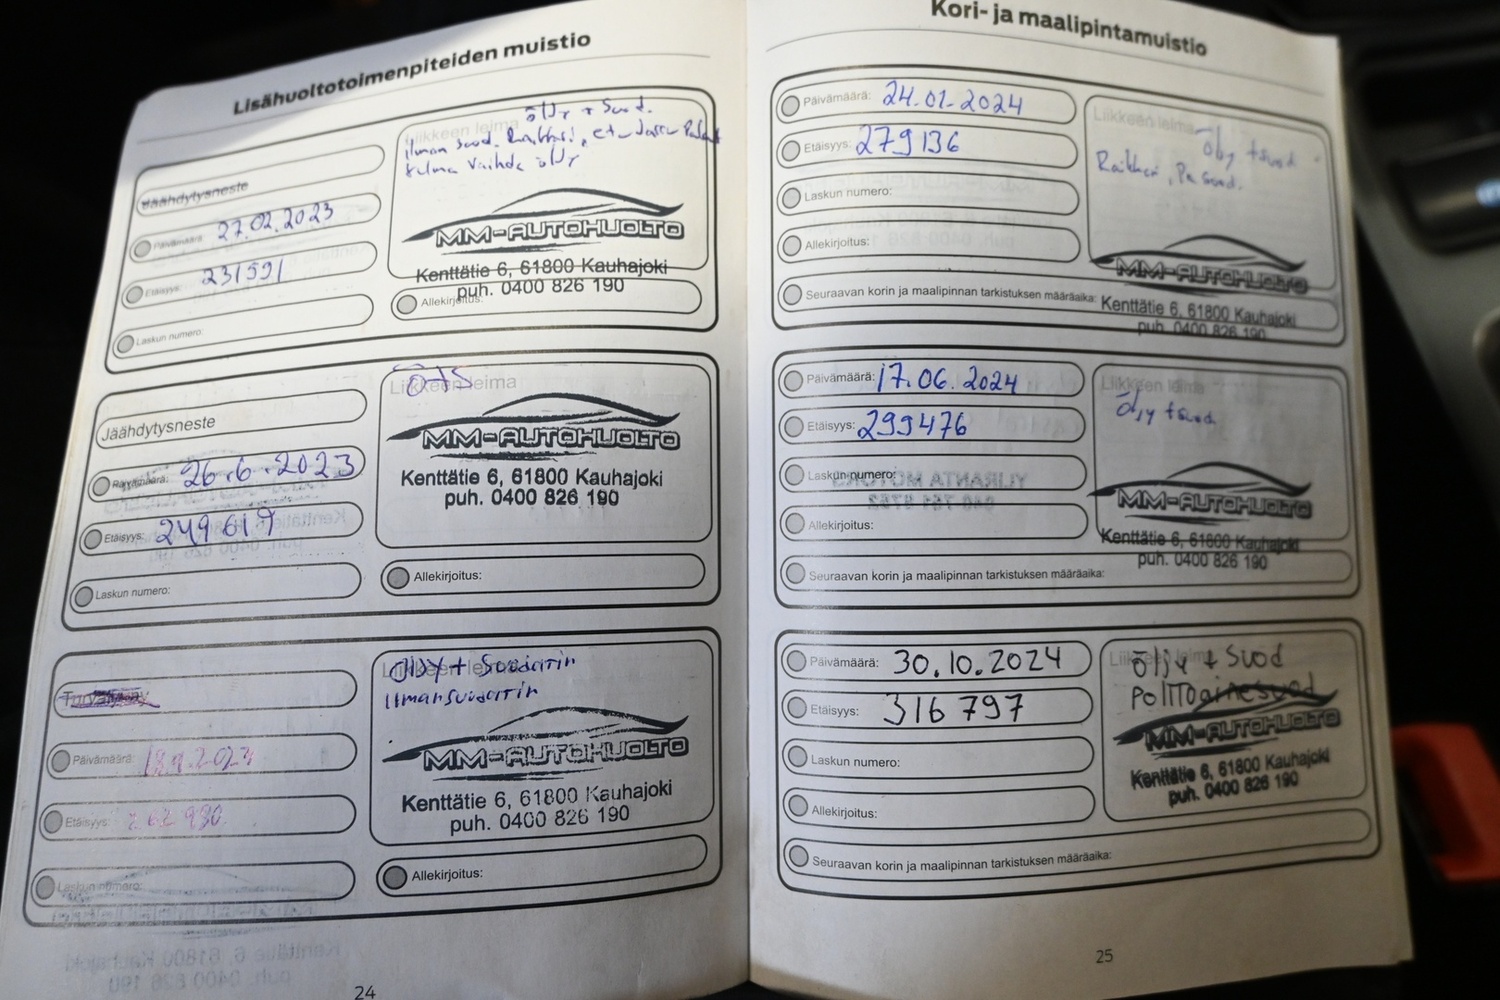 Lisähuoltotoimenpiteiden muistio
Jäähdytysneste
Päivämäärä: 27.02.2023
Etäisyys: 231591
Laskun numero:
Liikkeen leima
öljy + Suod.
ilman suod.
vaihde öljy
MM-AUTOHUOLTO
Kenttätie 6, 61800 Kauhajoki
puh. 0400 826 190
Allekirjoitus:
Jäähdytysneste
Päivämäärä: 26.6.2023
Etäisyys: 249619
Laskun numero:
Liikkeen leima
MM-AUTOHUOLTO
Kenttätie 6, 61800 Kauhajoki
puh. 0400 826 190
Allekirjoitus:
Päivämäärä:
Etäisyys:
Laskun numero:
Liikkeen leima
Öljy + Suodatin
Ilmansuodatin
MM-AUTOHUOLTO
Kenttätie 6, 61800 Kauhajoki
puh. 0400 826 190
Allekirjoitus:
24
Kori- ja maalipintamuistio
Päivämäärä: 24.01.2024
Etäisyys: 279136
Laskun numero:
Allekirjoitus:
Seuraavan korin ja maalipinnan tarkistuksen määräaika:
Liikkeen leima
Öljy + suod
Raitken, Pa suod.
MM-AUTOHUOLTO
Kenttätie 6, 61800 Kauhajoki
puh. 0400 826 190
Päivämäärä: 17.06.2024
Etäisyys: 299476
Laskun numero:
Allekirjoitus:
Seuraavan korin ja maalipinnan tarkistuksen määräaika:
Liikkeen leima
Öljy + suod
MM-AUTOHUOLTO
Kenttätie 6, 61800 Kauhajoki
puh. 0400 826 190
Päivämäärä: 30.10.2024
Etäisyys: 316 797
Laskun numero:
Allekirjoitus:
Seuraavan korin ja maalipinnan tarkistuksen määräaika:
Liikkeen leima
Öljy + Suod
Polttoainesuod
MM-AUTOHUOLTO
Kenttätie 6, 61800 Kauhajoki
puh. 0400 826 190
25